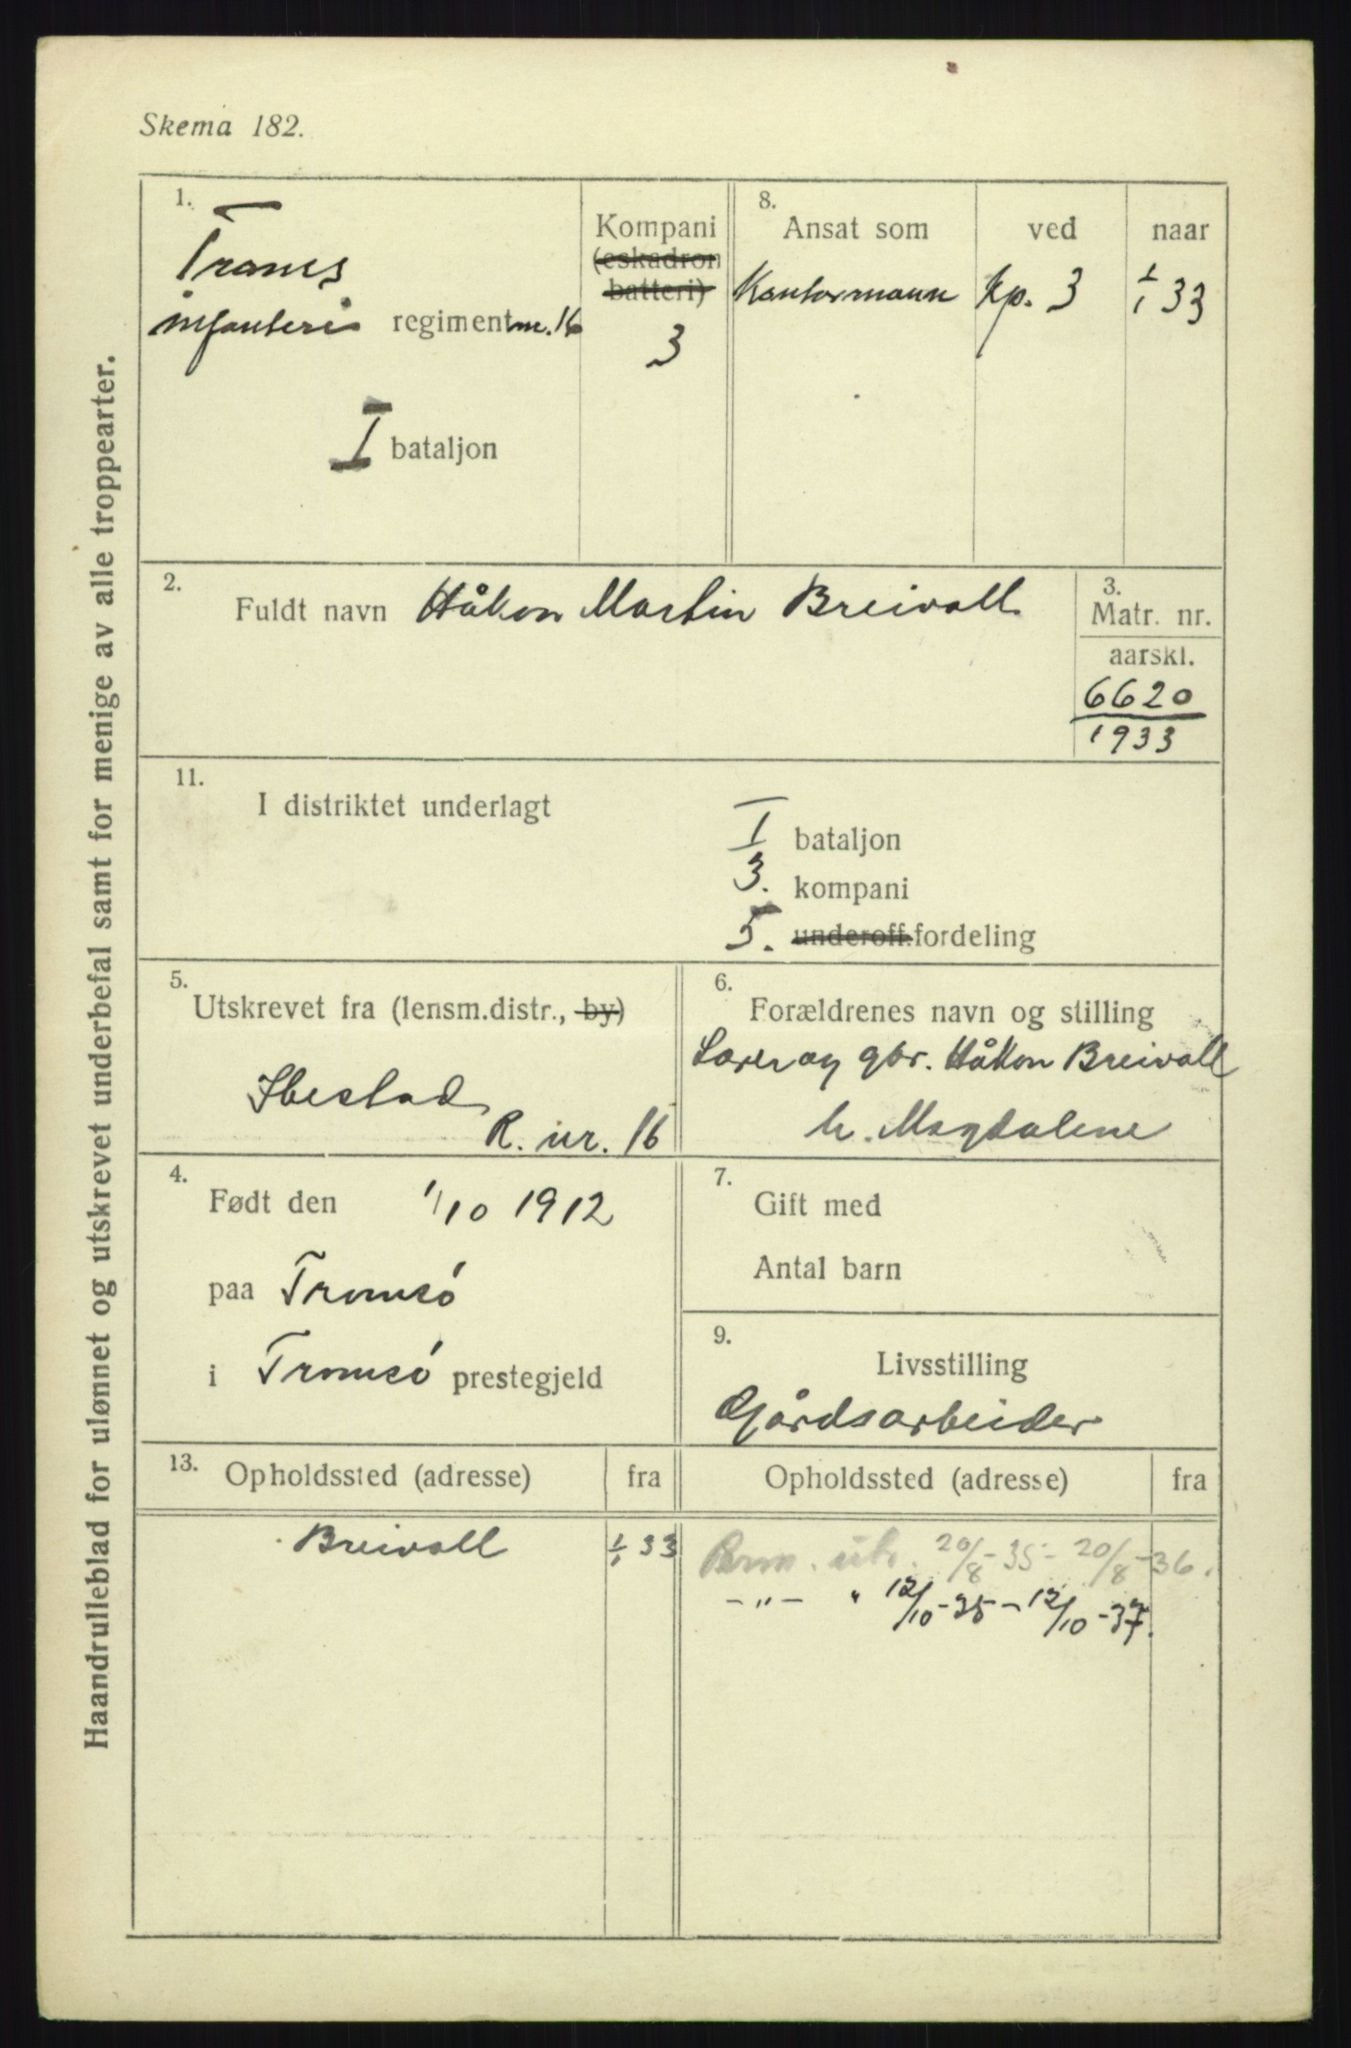 Skema 182.
Haandrulleblad for ulønnet og utskrevet underbefal samt for menige av alle troppearter.
1.
Troms
infanteri regiment nr. 16
I bataljon
Kompani
(eskadron
batteri)
3
8.
Ansat som ved naar
Kontormann kp. 3 1/1 33
2.
Fuldt navn Håkon Martin Breivoll
3.
Matr. nr.
aarskl.
6620
1933
11.
I distriktet underlagt
I bataljon
3. kompani
5. underoff.fordeling
5.
Utskrevet fra (lensm.distr., by)
Ibestad
R. nr. 16
6.
Forældrenes navn og stilling
gbr. Håkon Breivoll
h. Magdalene
4.
Født den 1/10 1912
paa Tromsö
i Tromsö prestegjeld
7.
Gift med
Antal barn
9.
Livsstilling
Gårdsarbeider
13. Opholdssted (adresse) fra
Opholdssted (adresse) fra
Breivoll 1/1 33
Perm. utr. 20/8-35 - 20/8-36.
-"- " 12/10-35 - 12/10-37.